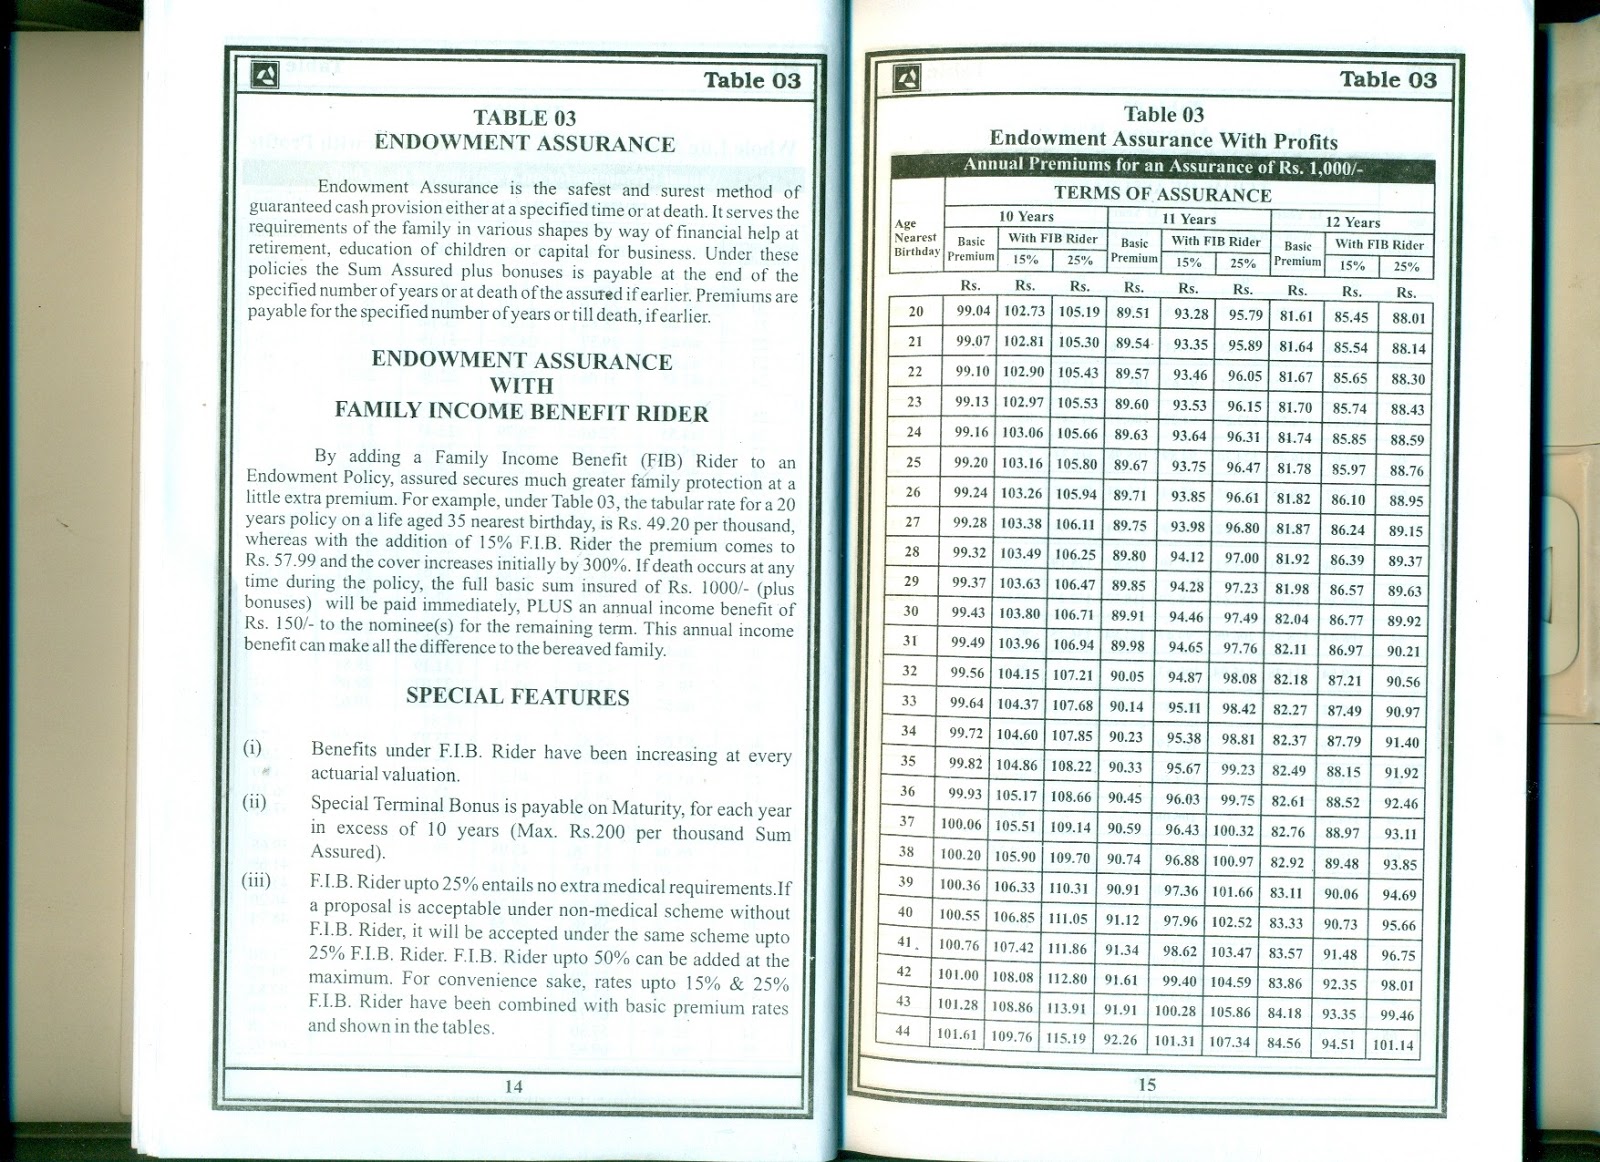 Table 03
TABLE 03
ENDOWMENT ASSURANCE
Endowment Assurance is the safest and surest method of
guaranteed cash provision either at a specified time or at death. It serves the
requirements of the family in various shapes by way of financial help at
retirement, education of children or capital for business. Under these
policies the Sum Assured plus bonuses is payable at the end of the
specified number of years or at death of the assured if earlier. Premiums are
payable for the specified number of years or till death, if earlier.
ENDOWMENT ASSURANCE
WITH
FAMILY INCOME BENEFIT RIDER
By adding a Family Income Benefit (FIB) Rider to an
Endowment Policy, assured secures much greater family protection at a
little extra premium. For example, under Table 03, the tabular rate for a 20
years policy on a life aged 35 nearest birthday, is Rs. 49.20 per thousand,
whereas with the addition of 15% F.I.B. Rider the premium comes to
Rs. 57.99 and the cover increases initially by 300%. If death occurs at any
time during the policy, the full basic sum insured of Rs. 1000/- (plus
bonuses) will be paid immediately, PLUS an annual income benefit of
Rs. 150/- to the nominee(s) for the remaining term. This annual income
benefit can make all the difference to the bereaved family.
SPECIAL FEATURES
(i) Benefits under F.I.B. Rider have been increasing at every
actuarial valuation.
(ii) Special Terminal Bonus is payable on Maturity, for each year
in excess of 10 years (Max. Rs.200 per thousand Sum
Assured).
(iii) F.I.B. Rider upto 25% entails no extra medical requirements.If
a proposal is acceptable under non-medical scheme without
F.I.B. Rider, it will be accepted under the same scheme upto
25% F.I.B. Rider. F.I.B. Rider upto 50% can be added at the
maximum. For convenience sake, rates upto 15% & 25%
F.I.B. Rider have been combined with basic premium rates
and shown in the tables.
14
Table 03
Table 03
Endowment Assurance With Profits
Annual Premiums for an Assurance of Rs. 1,000/-
TERMS OF ASSURANCE
Age Nearest Birthday
10 Years 11 Years 12 Years
Basic Premium With FIB Rider Basic Premium With FIB Rider Basic Premium With FIB Rider
15% 25% 15% 25% 15% 25%
Rs. Rs. Rs. Rs. Rs. Rs. Rs. Rs. Rs.
20 99.04 102.73 105.19 89.51 93.28 95.79 81.61 85.45 88.01
21 99.07 102.81 105.30 89.54 93.35 95.89 81.64 85.54 88.14
22 99.10 102.90 105.43 89.57 93.46 96.05 81.67 85.65 88.30
23 99.13 102.97 105.53 89.60 93.53 96.15 81.70 85.74 88.43
24 99.16 103.06 105.66 89.63 93.64 96.31 81.74 85.85 88.59
25 99.20 103.16 105.80 89.67 93.75 96.47 81.78 85.97 88.76
26 99.24 103.26 105.94 89.71 93.85 96.61 81.82 86.10 88.95
27 99.28 103.38 106.11 89.75 93.98 96.80 81.87 86.24 89.15
28 99.32 103.49 106.25 89.80 94.12 97.00 81.92 86.39 89.37
29 99.37 103.63 106.47 89.85 94.28 97.23 81.98 86.57 89.63
30 99.43 103.80 106.71 89.91 94.46 97.49 82.04 86.77 89.92
31 99.49 103.96 106.94 89.98 94.65 97.76 82.11 86.97 90.21
32 99.56 104.15 107.21 90.05 94.87 98.08 82.18 87.21 90.56
33 99.64 104.37 107.68 90.14 95.11 98.42 82.27 87.49 90.97
34 99.72 104.60 107.85 90.23 95.38 98.81 82.37 87.79 91.40
35 99.82 104.86 108.22 90.33 95.67 99.23 82.49 88.15 91.92
36 99.93 105.17 108.66 90.45 96.03 99.75 82.61 88.52 92.46
37 100.06 105.51 109.14 90.59 96.43 100.32 82.76 88.97 93.11
38 100.20 105.90 109.70 90.74 96.88 100.97 82.92 89.48 93.85
39 100.36 106.33 110.31 90.91 97.36 101.66 83.11 90.06 94.69
40 100.55 106.85 111.05 91.12 97.96 102.52 83.33 90.73 95.66
41. 100.76 107.42 111.86 91.34 98.62 103.47 83.57 91.48 96.75
42 101.00 108.08 112.80 91.61 99.40 104.59 83.86 92.35 98.01
43 101.28 108.86 113.91 91.91 100.28 105.86 84.18 93.35 99.46
44 101.61 109.76 115.19 92.26 101.31 107.34 84.56 94.51 101.14
15